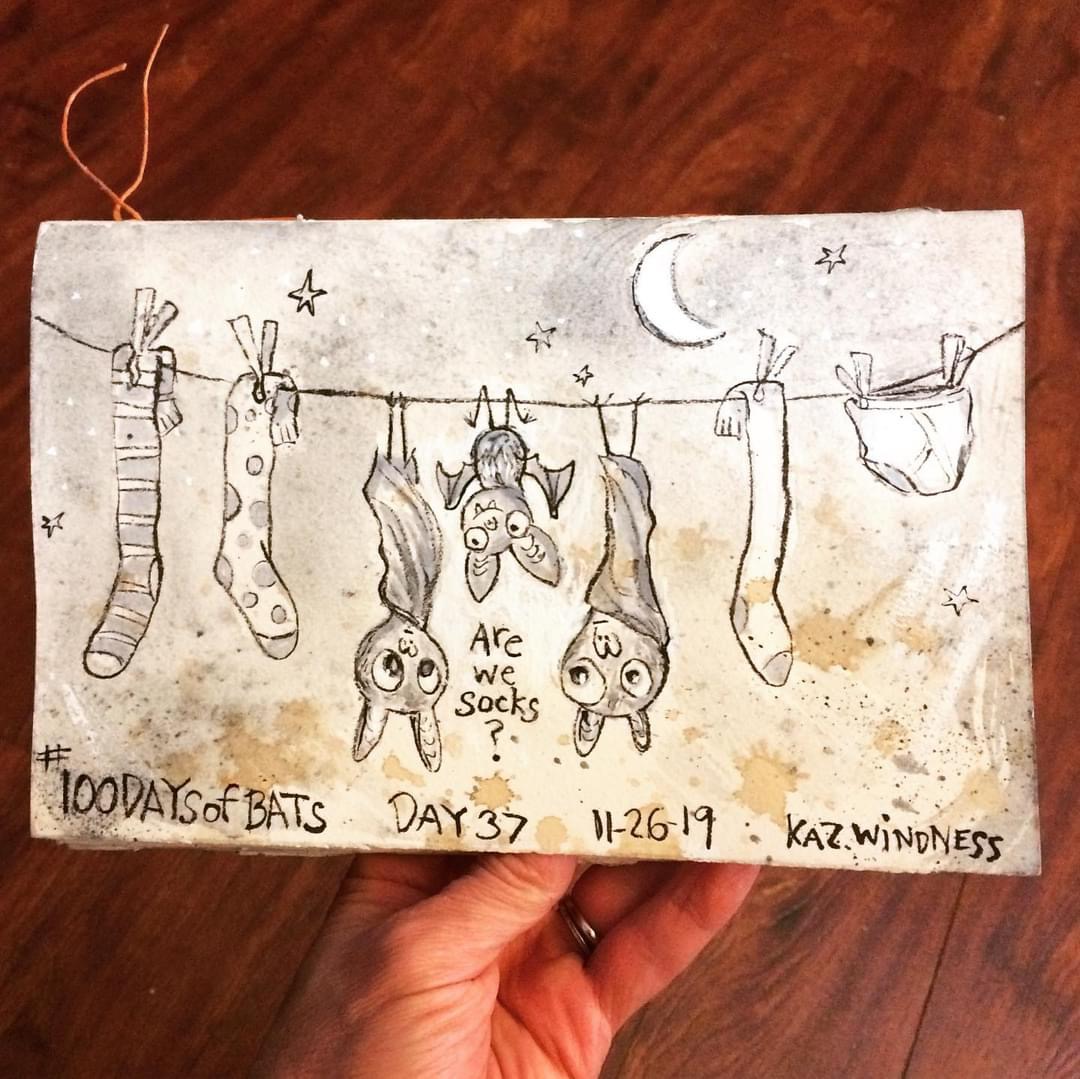 Are
we
socks
?
#100DAYSofBATS DAY 37 11-26-19 KAZ.WiNDNESS